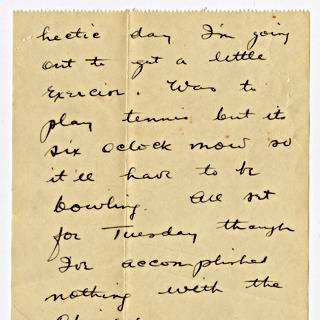 hectic day I'm going
out to get a little
exercise. Was to
play tennis but its
six oclock now so
it'll have to be
bowling. All set
for Tuesday though
I've accomplished
nothing with the